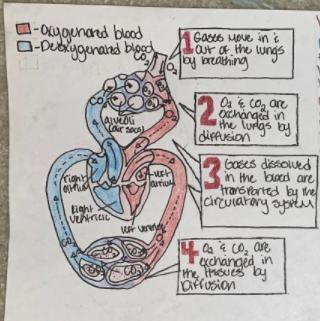 - Oxygenated blood
- Deoxygenated blood
CO₂
O₂
1 Gases move in &
out of the lungs
by breathing
alveoli
(air sacs)
2 O₂ & CO₂ are
exchanged in
the lungs by
diffusion
right
atrium
left
atrium
Right
ventricle
left ventricle
3 Gases dissolved
in the blood are
transported by the
circulatory system
CO₂
O₂
CO₂
O₂
4 O₂ & CO₂ are
exchanged in
the tissues by
Diffusion